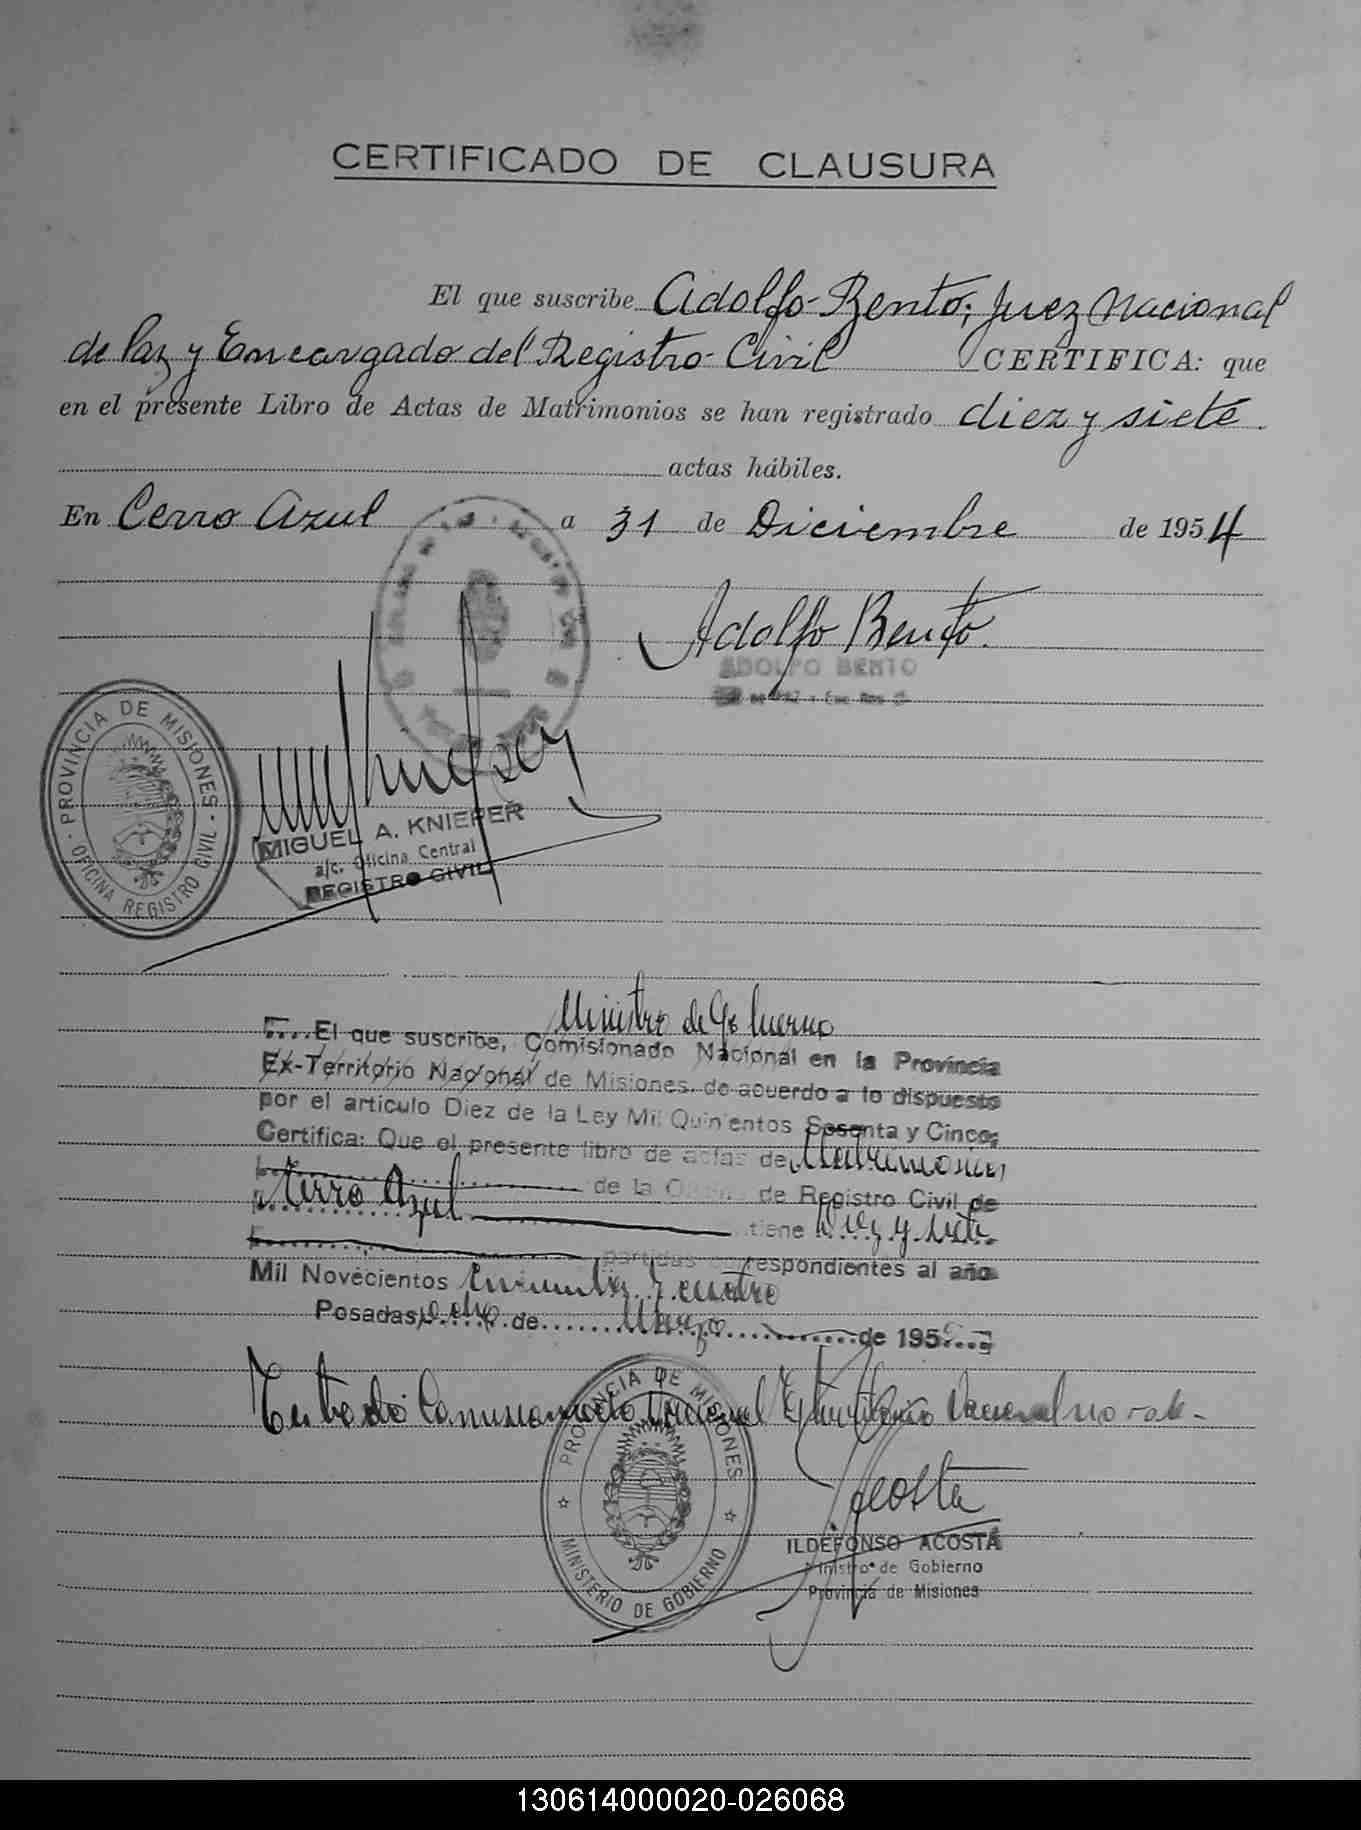 CERTIFICADO DE CLAUSURA
El que suscribe Adolfo Bento; Juez Nacional
de Paz y Encargado del Registro Civil CERTIFICA: que
en el presente Libro de Actas de Matrimonios se han registrado diez y siete
actas hábiles.
En Cerro Azul a 31 de Diciembre de 1954
Adolfo Bento.
ADOLFO BENTO
PROVINCIA DE MISIONES
OFICINA REGISTRO CIVIL
MIGUEL A. KNIEPER
a/c. Oficina Central
REGISTRO CIVIL
Ministro de Gobierno
El que suscribe, Comisionado Nacional en la Provincia
Ex-Territorio Nacional de Misiones de acuerdo a lo dispuesto
por el artículo Diez de la Ley Mil Quinientos Sesenta y Cinco;
Certifica: Que el presente libro de actas de Matrimonios
de la Oficina de Registro Civil de
Cerro Azul tiene Diez y siete
partidas correspondientes al año
Mil Novecientos cincuenta y cuatro
Posadas, ocho de Marzo de 195
Testado Comisionado Nacional Ex-territorio Nacional no vale-
PROVINCIA DE MISIONES
MINISTERIO DE GOBIERNO
Acosta
ILDEFONSO ACOSTA
Ministro de Gobierno
Provincia de Misiones
130614000020-026068